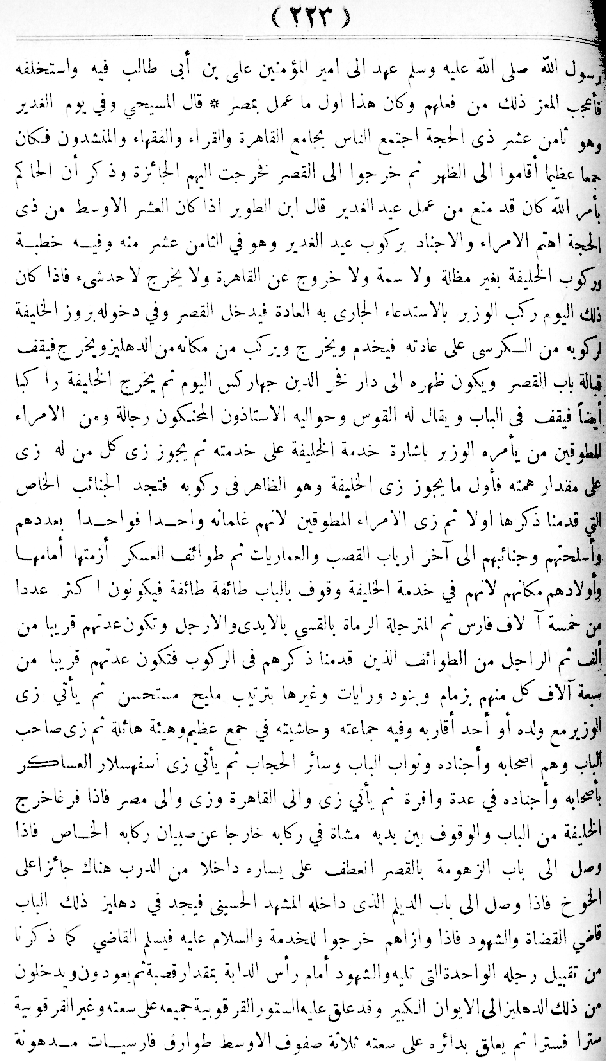 ( ٢٢٣ )
رسول الله صلى الله عليه وسلم عهد الى امير المؤمنين على بن أبى طالب فيه واستخلفه
فأعجب المعز ذلك من فعلهم وكان هذا اول ما عمل بمصر * قال المسيحي وفي يوم الغدير
وهو ثامن عشر ذى الحجة اجتمع الناس بجامع القاهرة والقراء والفقهاء والمنشدون فكان
جمعا عظيما أقاموا الى الظهر ثم خرجوا الى القصر فخرجت اليهم الجائزة وذكر أن الحاكم
بأمر الله كان قد منع من عمل عيد الغدير قال ابن الطوير اذا كان العشر الاوسط من ذى
الحجة اهتم الامراء والاجناد بركوب عيد الغدير وهو في الثامن عشر منه وفيه خطبة
وركوب الخليفة بغير مظلة ولا سمة ولا خروج عن القاهرة ولا يخرج لاحد شىء فاذا كان
ذلك اليوم ركب الوزير بالاستدعاء الجارى به العادة فيدخل القصر وفي دخوله بروز الخليفة
لركوبه من الكرسى على عادته فيخدم ويخرج ويركب من مكانه من الدهليز ويخرج فيقف
قبالة باب القصر ويكون ظهره الى دار فخر الدين جهاركس اليوم ثم يخرج الخليفة راكبا
أيضا فيقف فى الباب ويقال له القوس وحواليه الاستاذون المحنكون رجالة ومن الامراء
المطوقين من يأمره الوزير باشارة خدمة الخليفة على خدمته ثم يجوز زى كل من له زى
على مقدار همته فأول ما يجوز زى الخليفة وهو الظاهر فى ركوبه فتجد الجنائب الخاص
التي قدمنا ذكرها اولا ثم زى الامراء المطوقين لانهم غلمانه واحدا فواحدا بعددهم
وأسلحتهم وجنائبهم الى آخر ارباب القصب والعماريات ثم طوائف العسكر أزمتها أمامها
وأولادهم مكانهم لانهم في خدمة الخليفة وقوف بالباب طائفة طائفة فيكونون اكثر عددا
من خمسة آلاف فارس ثم المترجلة الرماة بالقسي بالايدى والارجل وتكون عدتهم قريبا من
ألف ثم الراجل من الطوائف الذين قدمنا ذكرهم فى الركوب فتكون عدتهم قريبا من
سبعة آلاف كل منهم بزمام وبنود ورايات وغيرها بترتيب مليح مستحسن ثم يأتى زى
الوزير مع ولده أو أحد أقاربه وفيه جماعته وحاشيته في جمع عظيم وهيئة هائلة ثم زى صاحب
الباب وهم اصحابه وأجناده ونواب الباب وسائر الحجاب ثم يأتي زى اسفهسلار العساكر
بأصحابه وأجناده في عدة وافرة ثم يأتي زى والى القاهرة وزى والى مصر فاذا فرغا خرج
الخليفة من الباب والوقوف بين يديه مشاة في ركابه خارجا عن صبيان ركابه الخاص فاذا
وصل الى باب الزهومة بالقصر انعطف على يساره داخلا من الدرب هناك جائزا على
الخوخ فاذا وصل الى باب الديلم الذى داخله المشهد الحسينى فيجد في دهليز ذلك الباب
قاضي القضاة والشهود فاذا وازاهم خرجوا للخدمة والسلام عليه فيسلم القاضي كما ذكرنا
من تقبيل رجله الواحدة التى تليه والشهود أمام رأس الدابة بمقدار قصبة ثم يعودون ويدخلون
من ذلك الدهليز الى الايوان الكبير وقد علق عليه الستور القرقوبية جميعه على سعته وغير القرقوبية
سترا فسترا ثم يعلق بدائره على سعته ثلاثة صفوف الاوسط طوارق فارسيات مدهونة